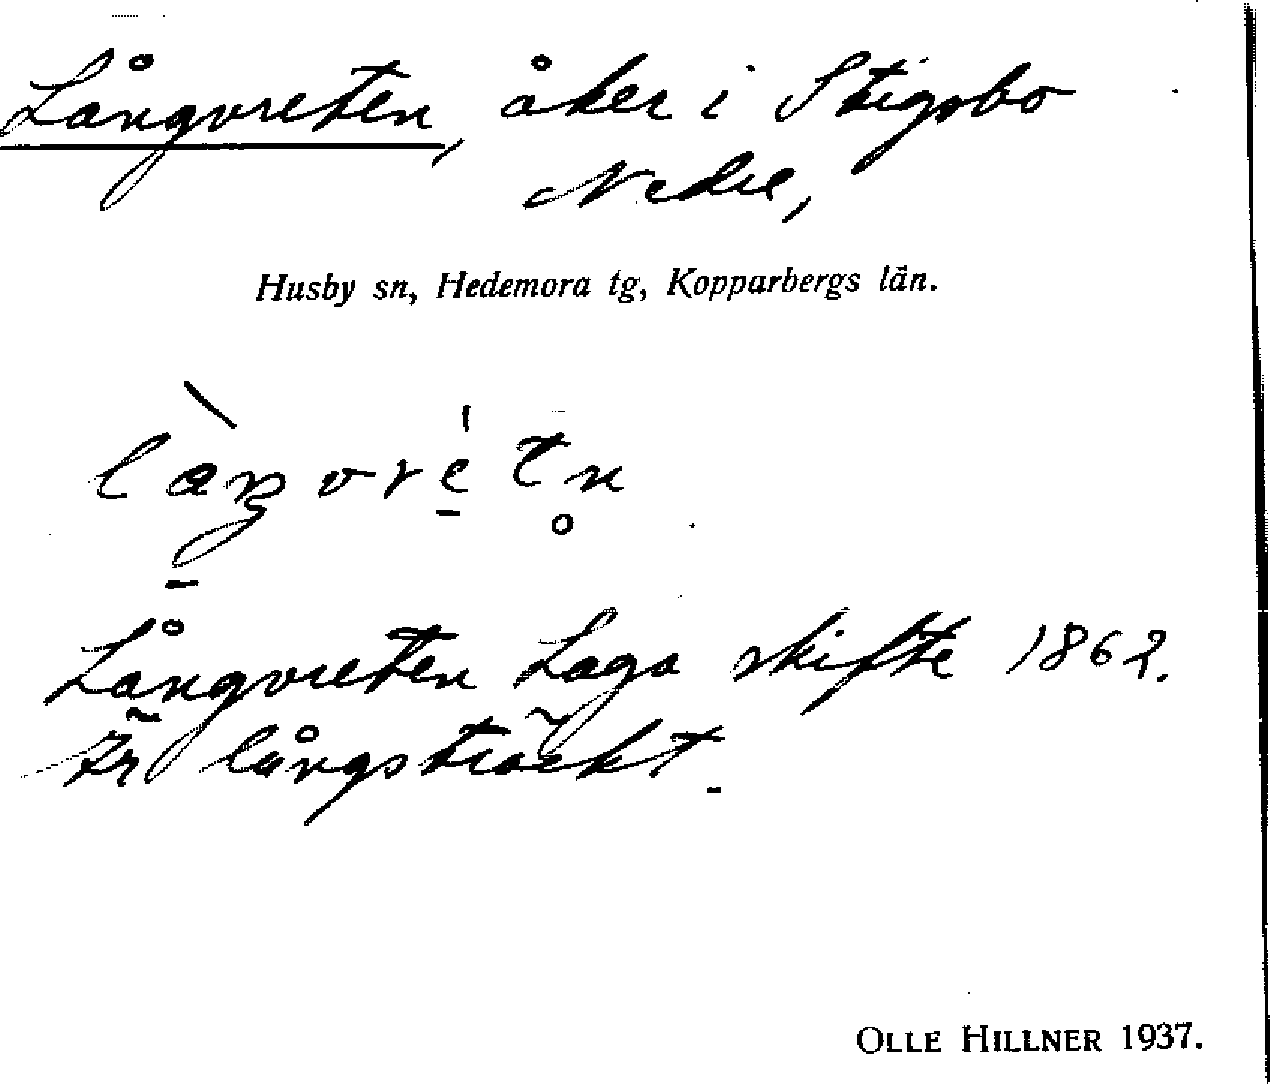 Långvreten, åker i Stigsbo
Nedre,
Husby sn, Hedemora tg, Kopparbergs län.
Långvreten Laga skifte 1862.
Är långsträckt.
OLLE HILLNER 1937.